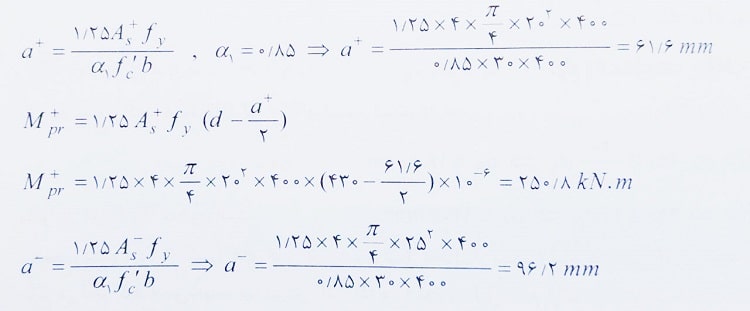 a⁺ = ۱/۲۵ A_s⁺ f_y / α₁ f_c′ b , α₁ = ۰/۸۵ ⇒ a⁺ = ۱/۲۵ × ۴ × π/۴ × ۲۰² × ۴۰۰ / ۰/۸۵ × ۳۰ × ۴۰۰ = ۶۱/۶ mm
M_pr⁺ = ۱/۲۵ A_s⁺ f_y (d − a⁺/۲)
M_pr⁺ = ۱/۲۵ × ۴ × π/۴ × ۲۰² × ۴۰۰ × (۴۳۰ − ۶۱/۶/۲) × ۱۰⁻۶ = ۲۵۰/۸ kN.m
a⁻ = ۱/۲۵ A_s⁻ f_y / α₁ f_c′ b ⇒ a⁻ = ۱/۲۵ × ۴ × π/۴ × ۲۵² × ۴۰۰ / ۰/۸۵ × ۳۰ × ۴۰۰ = ۹۶/۲ mm